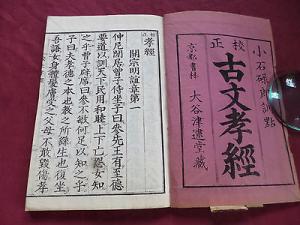 小石碌郎訓點
校正
古文孝經
京都書林 大谷津逮堂藏
校正 孝經
開宗明誼章第一
仲尼閒居曾子侍坐子曰參先王有至德
要道以訓天下民用和睦上下亡怨女知
之乎曾子辟席曰參不敏何足以知之乎
子曰夫孝德之本也教之所繇生也復坐
吾語女身體髮膚受之父母不敢毀傷孝